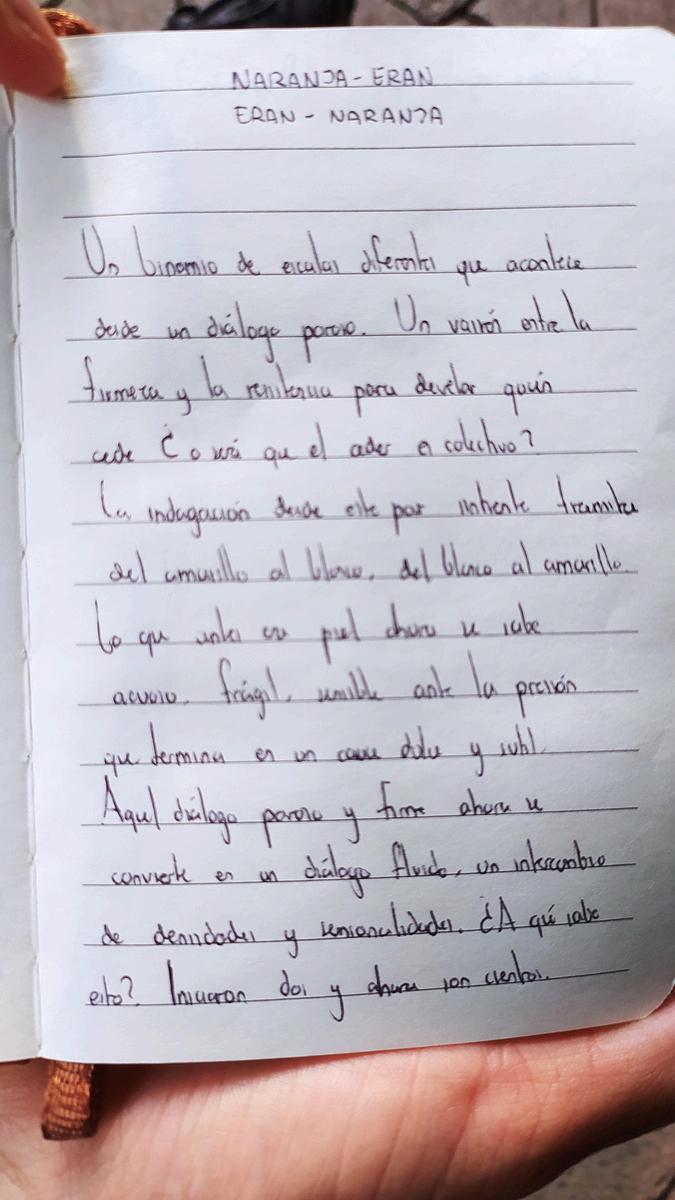 NARANJA - ERAN
ERAN - NARANJA
Un binomio de escalas diferentes que acontece
desde un diálogo poroso. Un vaivén entre la
firmeza y la resistencia para develar quién
cede ¿o será que el ceder es colectivo?
La indagación desde este par insistente transita
del amarillo al blanco, del blanco al amarillo.
Lo que antes era piel ahora se sabe
acuoso, frágil, sensible ante la presión
que termina en un cauce dulce y sutil.
Aquel diálogo poroso y firme ahora se
convierte en un diálogo fluido, un intercambio
de densidades y sensorialidades. ¿A qué sabe
esto? Iniciaron dos y ahora son cientos.